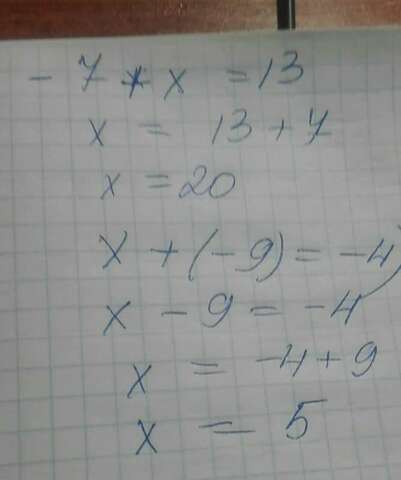 - 7 + x = 13
x = 13 + 7
x = 20
x + (-9) = -4
x - 9 = -4
x = -4 + 9
x = 5